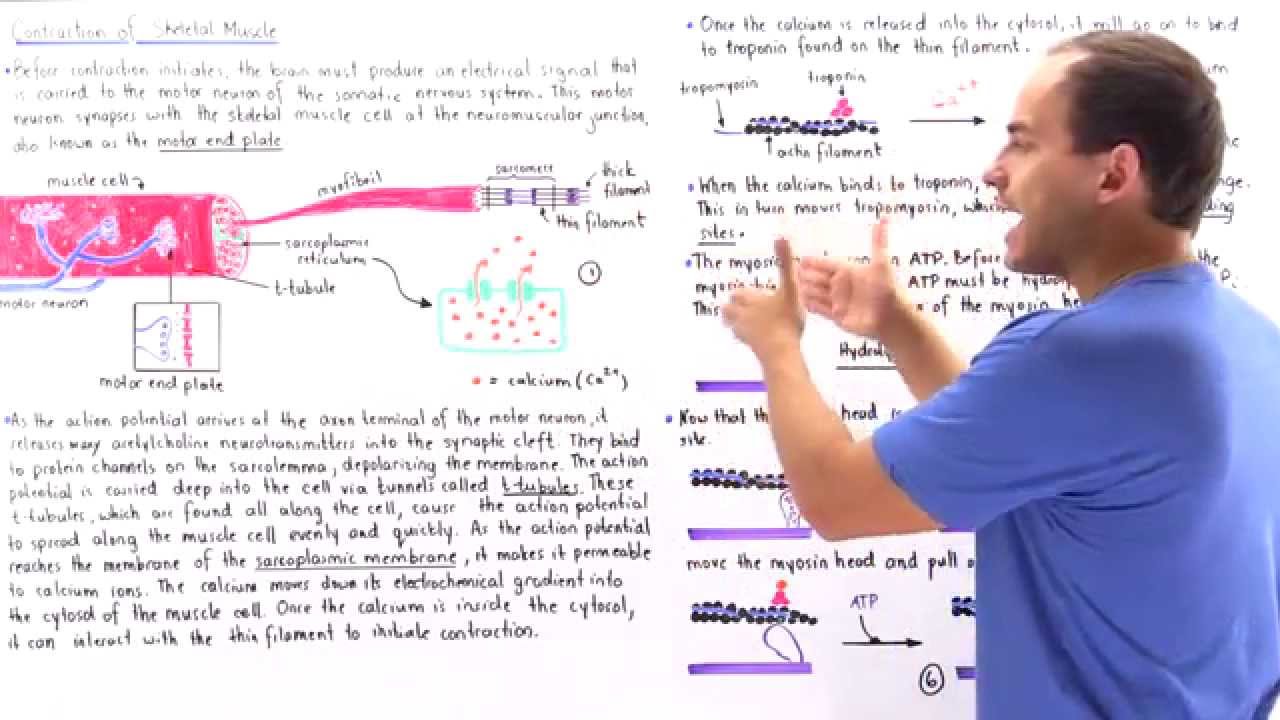 Contraction of Skeletal Muscle
• Before contraction initiates, the brain must produce an electrical signal that
is carried to the motor neuron of the somatic nervous system. This motor
neuron synapses with the skeletal muscle cell at the neuromuscular junction,
also known as the motor end plate
muscle cell
myofibril
sarcomere
thick
filament
thin filament
sarcoplasmic
reticulum
t-tubule
motor neuron
motor end plate
1
= calcium (Ca2+)
• As the action potential arrives at the axon terminal of the motor neuron, it
releases many acetylcholine neurotransmitters into the synaptic cleft. They bind
to protein channels on the sarcolemma, depolarizing the membrane. The action
potential is carried deep into the cell via tunnels called t-tubules. These
t-tubules, which are found all along the cell, cause the action potential
to spread along the muscle cell evenly and quickly. As the action potential
reaches the membrane of the sarcoplasmic membrane, it makes it permeable
to calcium ions. The calcium moves down its electrochemical gradient into
the cytosol of the muscle cell. Once the calcium is inside the cytosol,
it can interact with the thin filament to initiate contraction.
• Once the calcium is released into the cytosol, it will go on to bind
to troponin found on the thin filament.
tropomyosin
troponin
Ca++
actin filament
• When the calcium binds to troponin,
This in turn moves tropomyosin,
sites.
• The ATP. Before the
ATP must be
This of the myosin
• Now that the head
site.
move the myosin head and pull
ATP
6